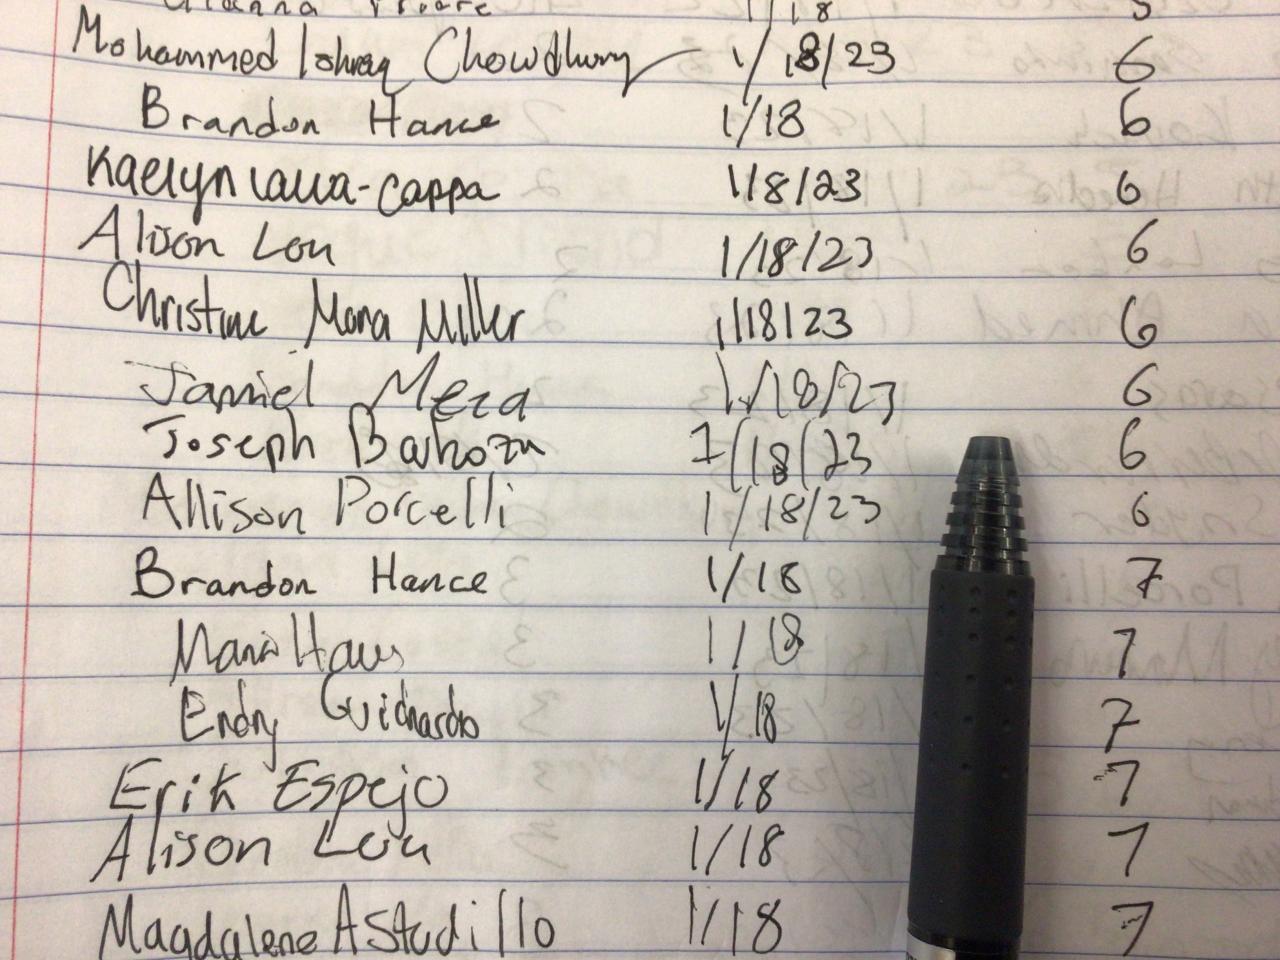 Mohammed Ishraq Chowdhury 1/18/23 6
Brandon Hance 1/18 6
Kaelyn 1/18/23 6
Alison Lou 1/18/23 6
Christine Mona Miller 1/18/23 6
Jamiel Meza 1/18/23 6
Joseph Barboza 1/18/23 6
Allison Porcelli 1/18/23 6
Brandon Hance 1/18 7
1/18 7
Endry Guichardo 1/18 7
Erik Espejo 1/18 7
Alison Lou 1/18 7
Magdalene Astudillo 1/18 7